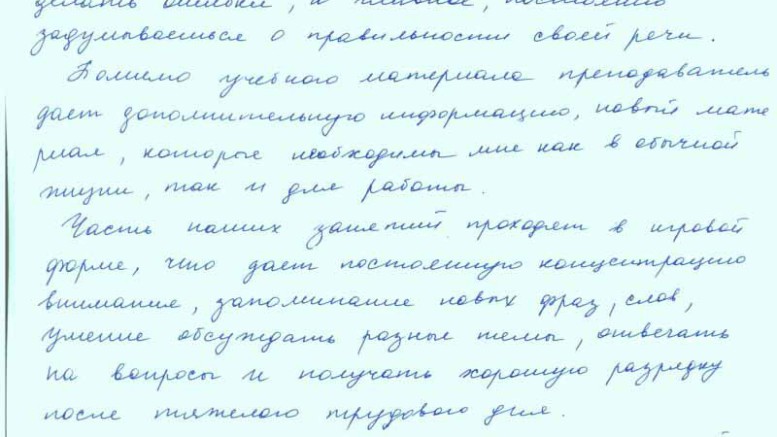 делать ошибки, и главное, постоянно
задумываешься о правильности своей речи.
Помимо учебного материала преподаватель
дает дополнительную информацию, новый мате
риал, которые необходимы мне как в обычной
жизни, так и для работы.
Часть наших занятий проходят в игровой
форме, что дает постоянную концентрацию
внимание, запоминание новых фраз, слов,
умение обсуждать разные темы, отвечать
на вопросы и получать хорошую разрядку
после тяжелого трудового дня.